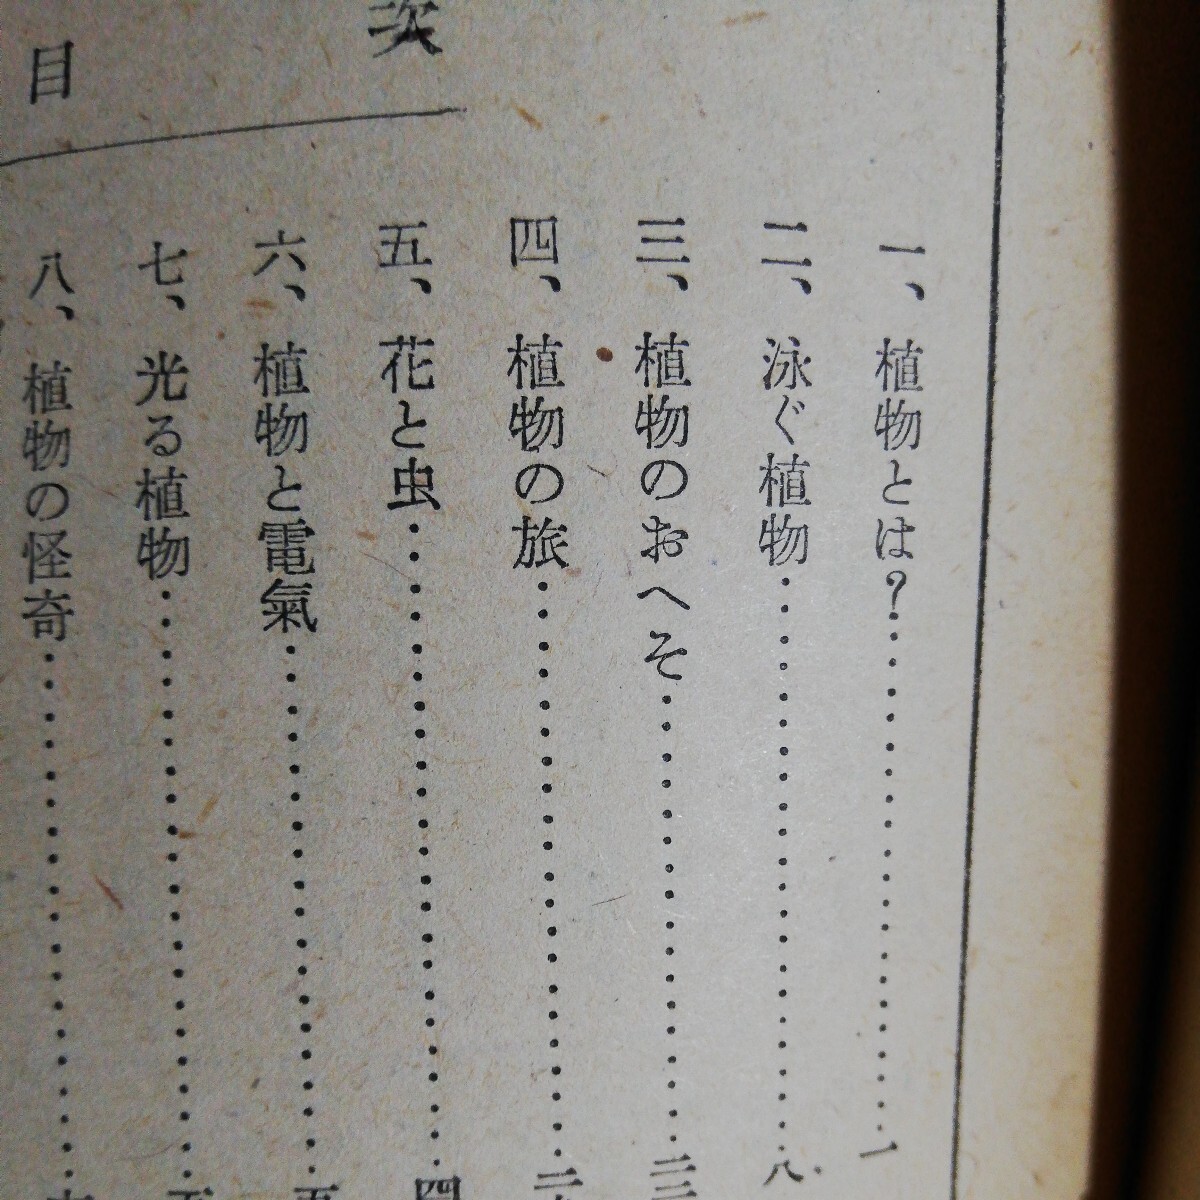 目次
一、植物とは？……一
二、泳ぐ植物……八
三、植物のおへそ……
四、植物の旅……
五、花と虫……四
六、植物と電氣……五
七、光る植物……五
八、植物の怪奇……